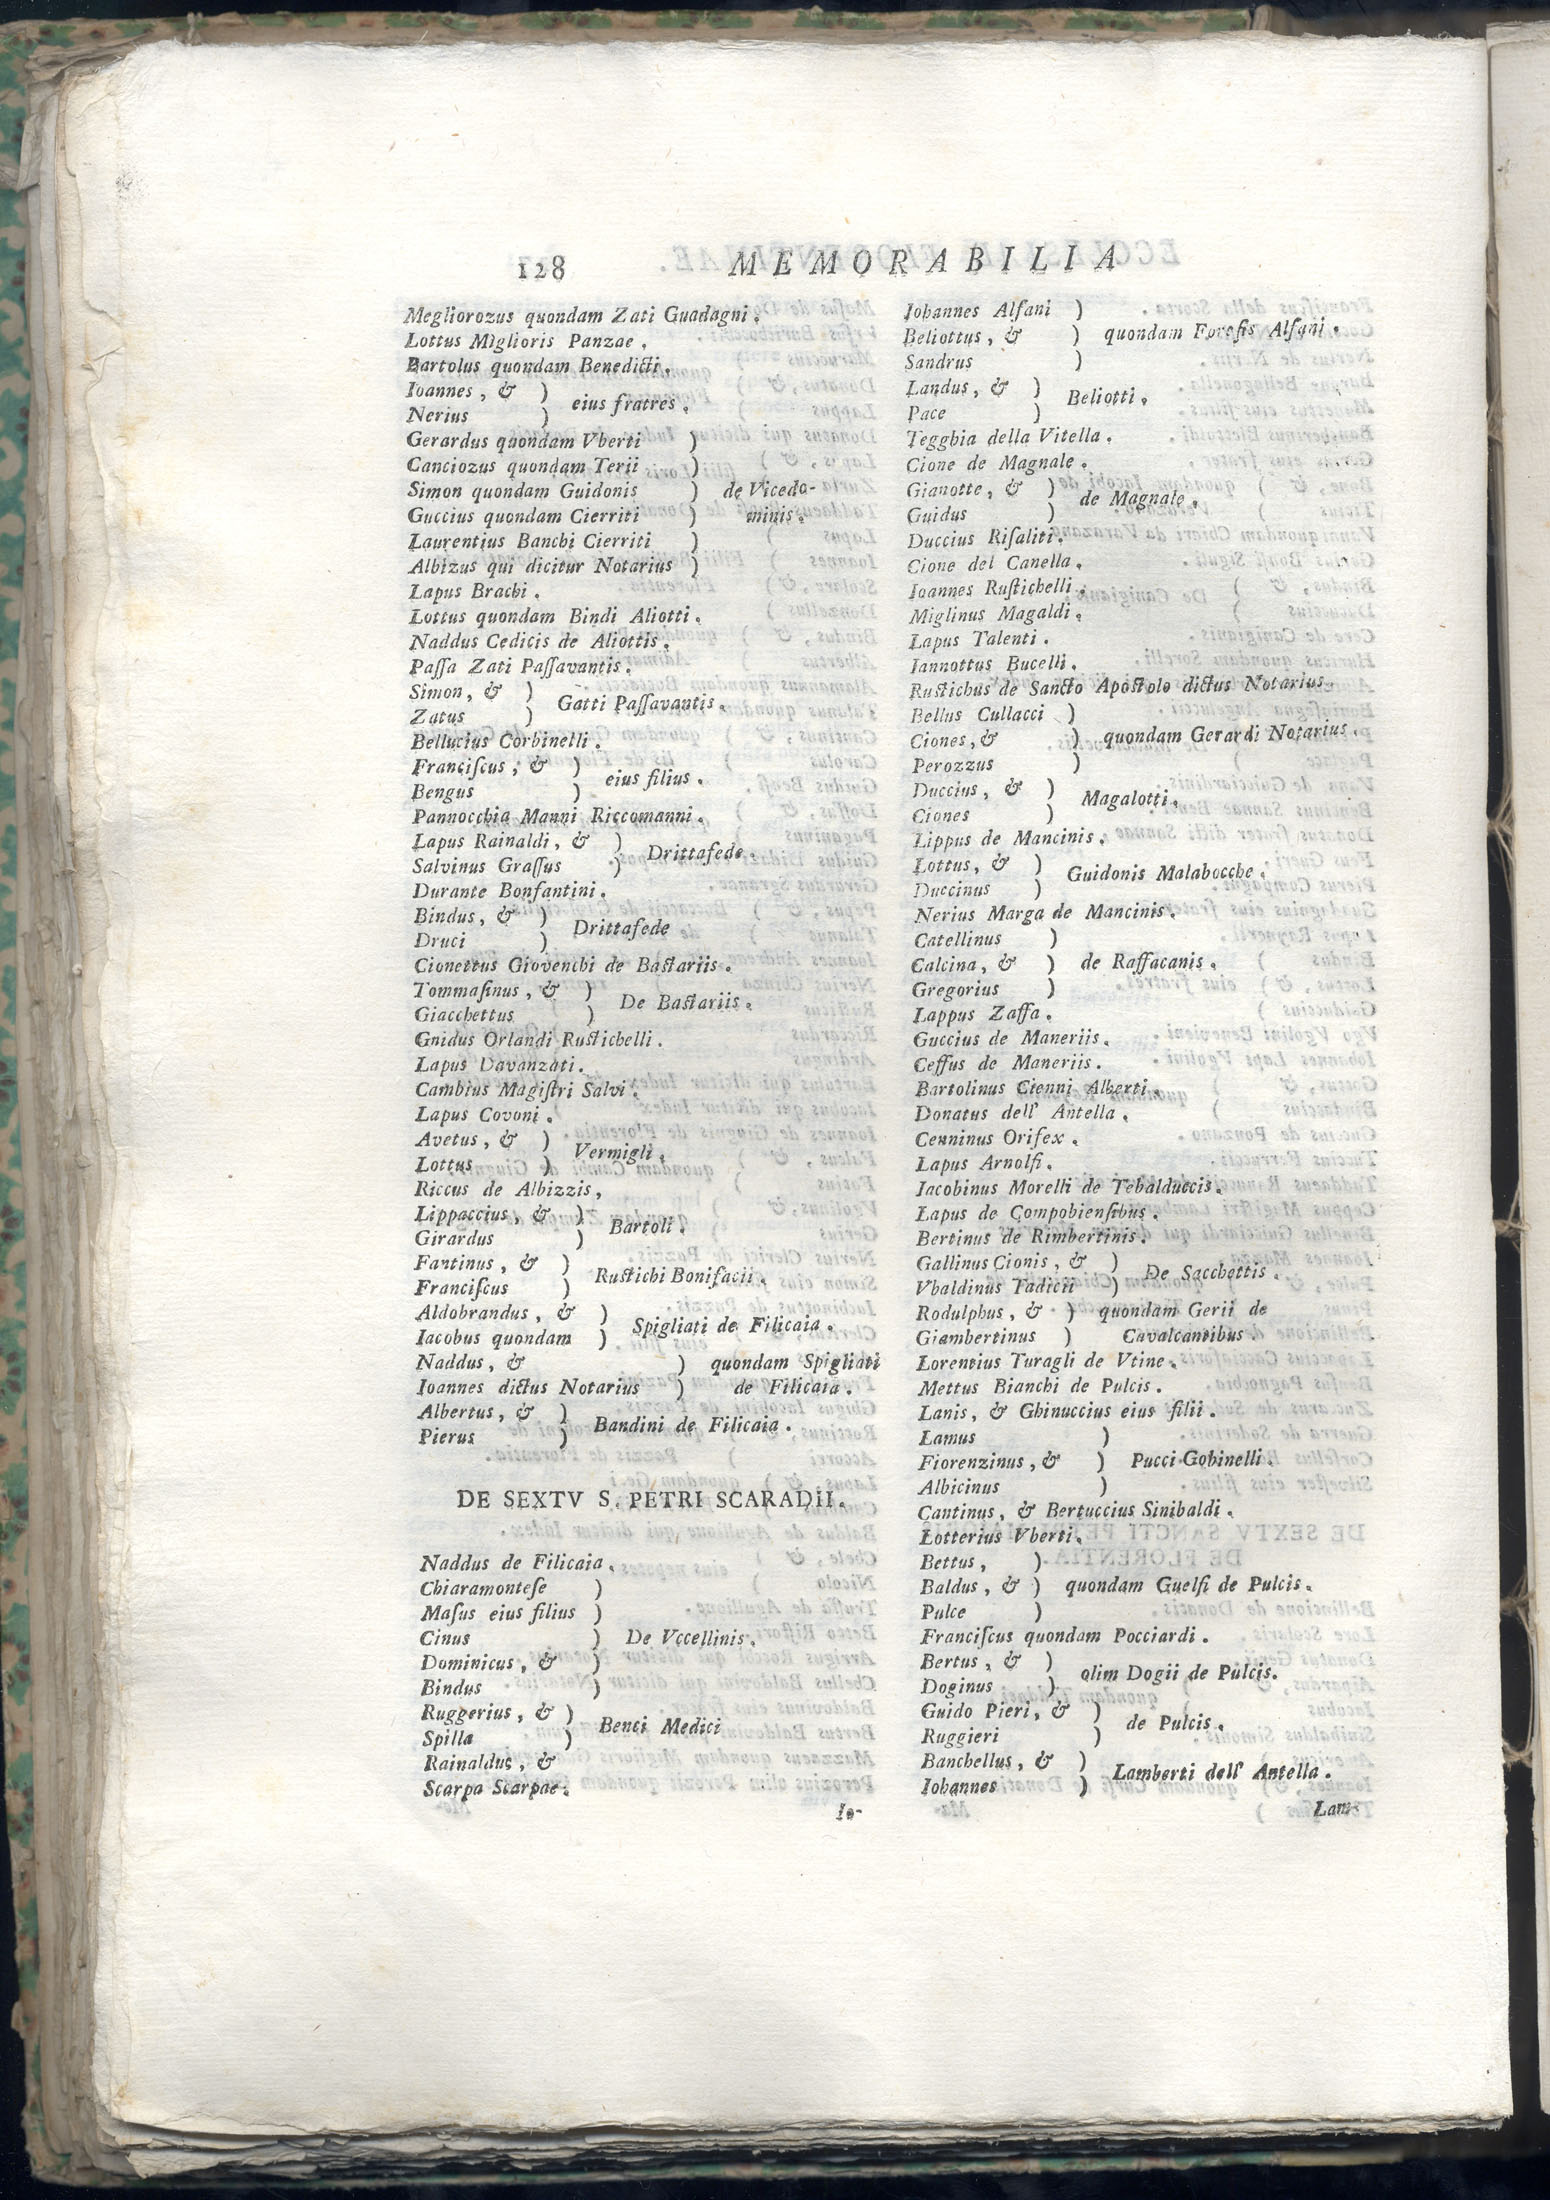 128 MEMORABILIA
Megliorozus quondam Zati Guadagni.
Lottus Miglioris Panzae.
Bartolus quondam Benedicti.
Ioannes, & )
eius fratres.
Nerius )
Gerardus quondam Vberti )
Canciozus quondam Terii )
Simon quondam Guidonis ) de Vicedo-
Guccius quondam Cierriti ) minis.
Laurentius Banchi Cierriti )
Albizus qui dicitur Notarius )
Lapus Brachi.
Lottus quondam Bindi Aliotti.
Naddus Cedicis de Aliottis.
Paſſa Zati Paſſavantis.
Simon, & )
Gatti Paſſavantis.
Zatus )
Bellucius Corbinelli.
Franciſcus, & )
eius filius.
Bengus )
Pannocchia Manni Riccomanni.
Lapus Rainaldi, & )
Drittafede.
Salvinus Graſſus )
Durante Bonfantini.
Bindus, & )
Drittafede
Druci )
Cionettus Giovenchi de Baſtariis.
Tommaſinus, & )
De Baſtariis.
Giacchettus )
Gnidus Orlandi Ruſtichelli.
Lapus Davanzati.
Cambius Magiſtri Salvi.
Lapus Covoni.
Avetus, & )
Vermigli.
Lottus )
Riccus de Albizzis,
Lippaccius, & )
Bartoli.
Girardus )
Fantinus, & )
Ruſtichi Bonifacii.
Franciſcus )
Aldobrandus, & )
Spigliati de Filicaia.
Iacobus quondam )
Naddus, & ) quondam Spigliati
Ioannes dictus Notarius ) de Filicaia.
Albertus, & )
Bandini de Filicaia.
Pierus )
DE SEXTV S. PETRI SCARADII.
Naddus de Filicaia.
Chiaramonteſe )
Maſus eius filius )
Cinus ) De Vccellinis.
Dominicus, & )
Bindus )
Ruggerius, & )
Benci Medici
Spilla )
Rainaldus, &
Scarpa Scarpae.
Io-
Iohannes Alfani )
Beliottus, & ) quondam Foreſis Alfani.
Sandrus )
Landus, & )
Beliotti.
Pace )
Tegghia della Vitella.
Cione de Magnale.
Gianotte, & )
de Magnale.
Guidus )
Duccius Riſaliti.
Cione del Canella.
Ioannes Ruſtichelli.
Miglinus Magaldi.
Lapus Talenti.
Iannottus Bucelli.
Ruſtichus de Sancto Apoſtolo dictus Notarius.
Bellus Cullacci )
Ciones, & ) quondam Gerardi Notarius.
Perozzus )
Duccius, & )
Magalotti.
Ciones )
Lippus de Mancinis.
Lottus, & )
Guidonis Malabocche.
Duccinus )
Nerius Marga de Mancinis.
Catellinus )
Calcina, & ) de Raffacanis.
Gregorius )
Lappus Zaffa.
Guccius de Maneriis.
Ceffus de Maneriis.
Bartolinus Cienni Alberti.
Donatus dell' Antella.
Cenninus Orifex.
Lapus Arnolfi.
Iacobinus Morelli de Tebalduccis.
Lapus de Compobienſibus.
Bertinus de Rimbertinis.
Gallinus Cionis, & )
De Sacchettis.
Vbaldinus Tadicii )
Rodulphus, & ) quondam Gerii de
Giambertinus ) Cavalcantibus.
Lorentius Turagli de Vtine.
Mettus Bianchi de Pulcis.
Lanis, & Ghinuccius eius filii.
Lamus )
Fiorenzinus, & ) Pucci Gobinelli.
Albicinus )
Cantinus, & Bertuccius Sinibaldi.
Lotterius Vberti.
Bettus, )
Baldus, & ) quondam Guelfi de Pulcis.
Pulce )
Franciſcus quondam Pocciardi.
Bertus, & )
olim Dogii de Pulcis.
Doginus )
Guido Pieri, & )
de Pulcis.
Ruggieri )
Banchellus, & )
Lamberti dell' Antella.
Iohannes )
Lam-